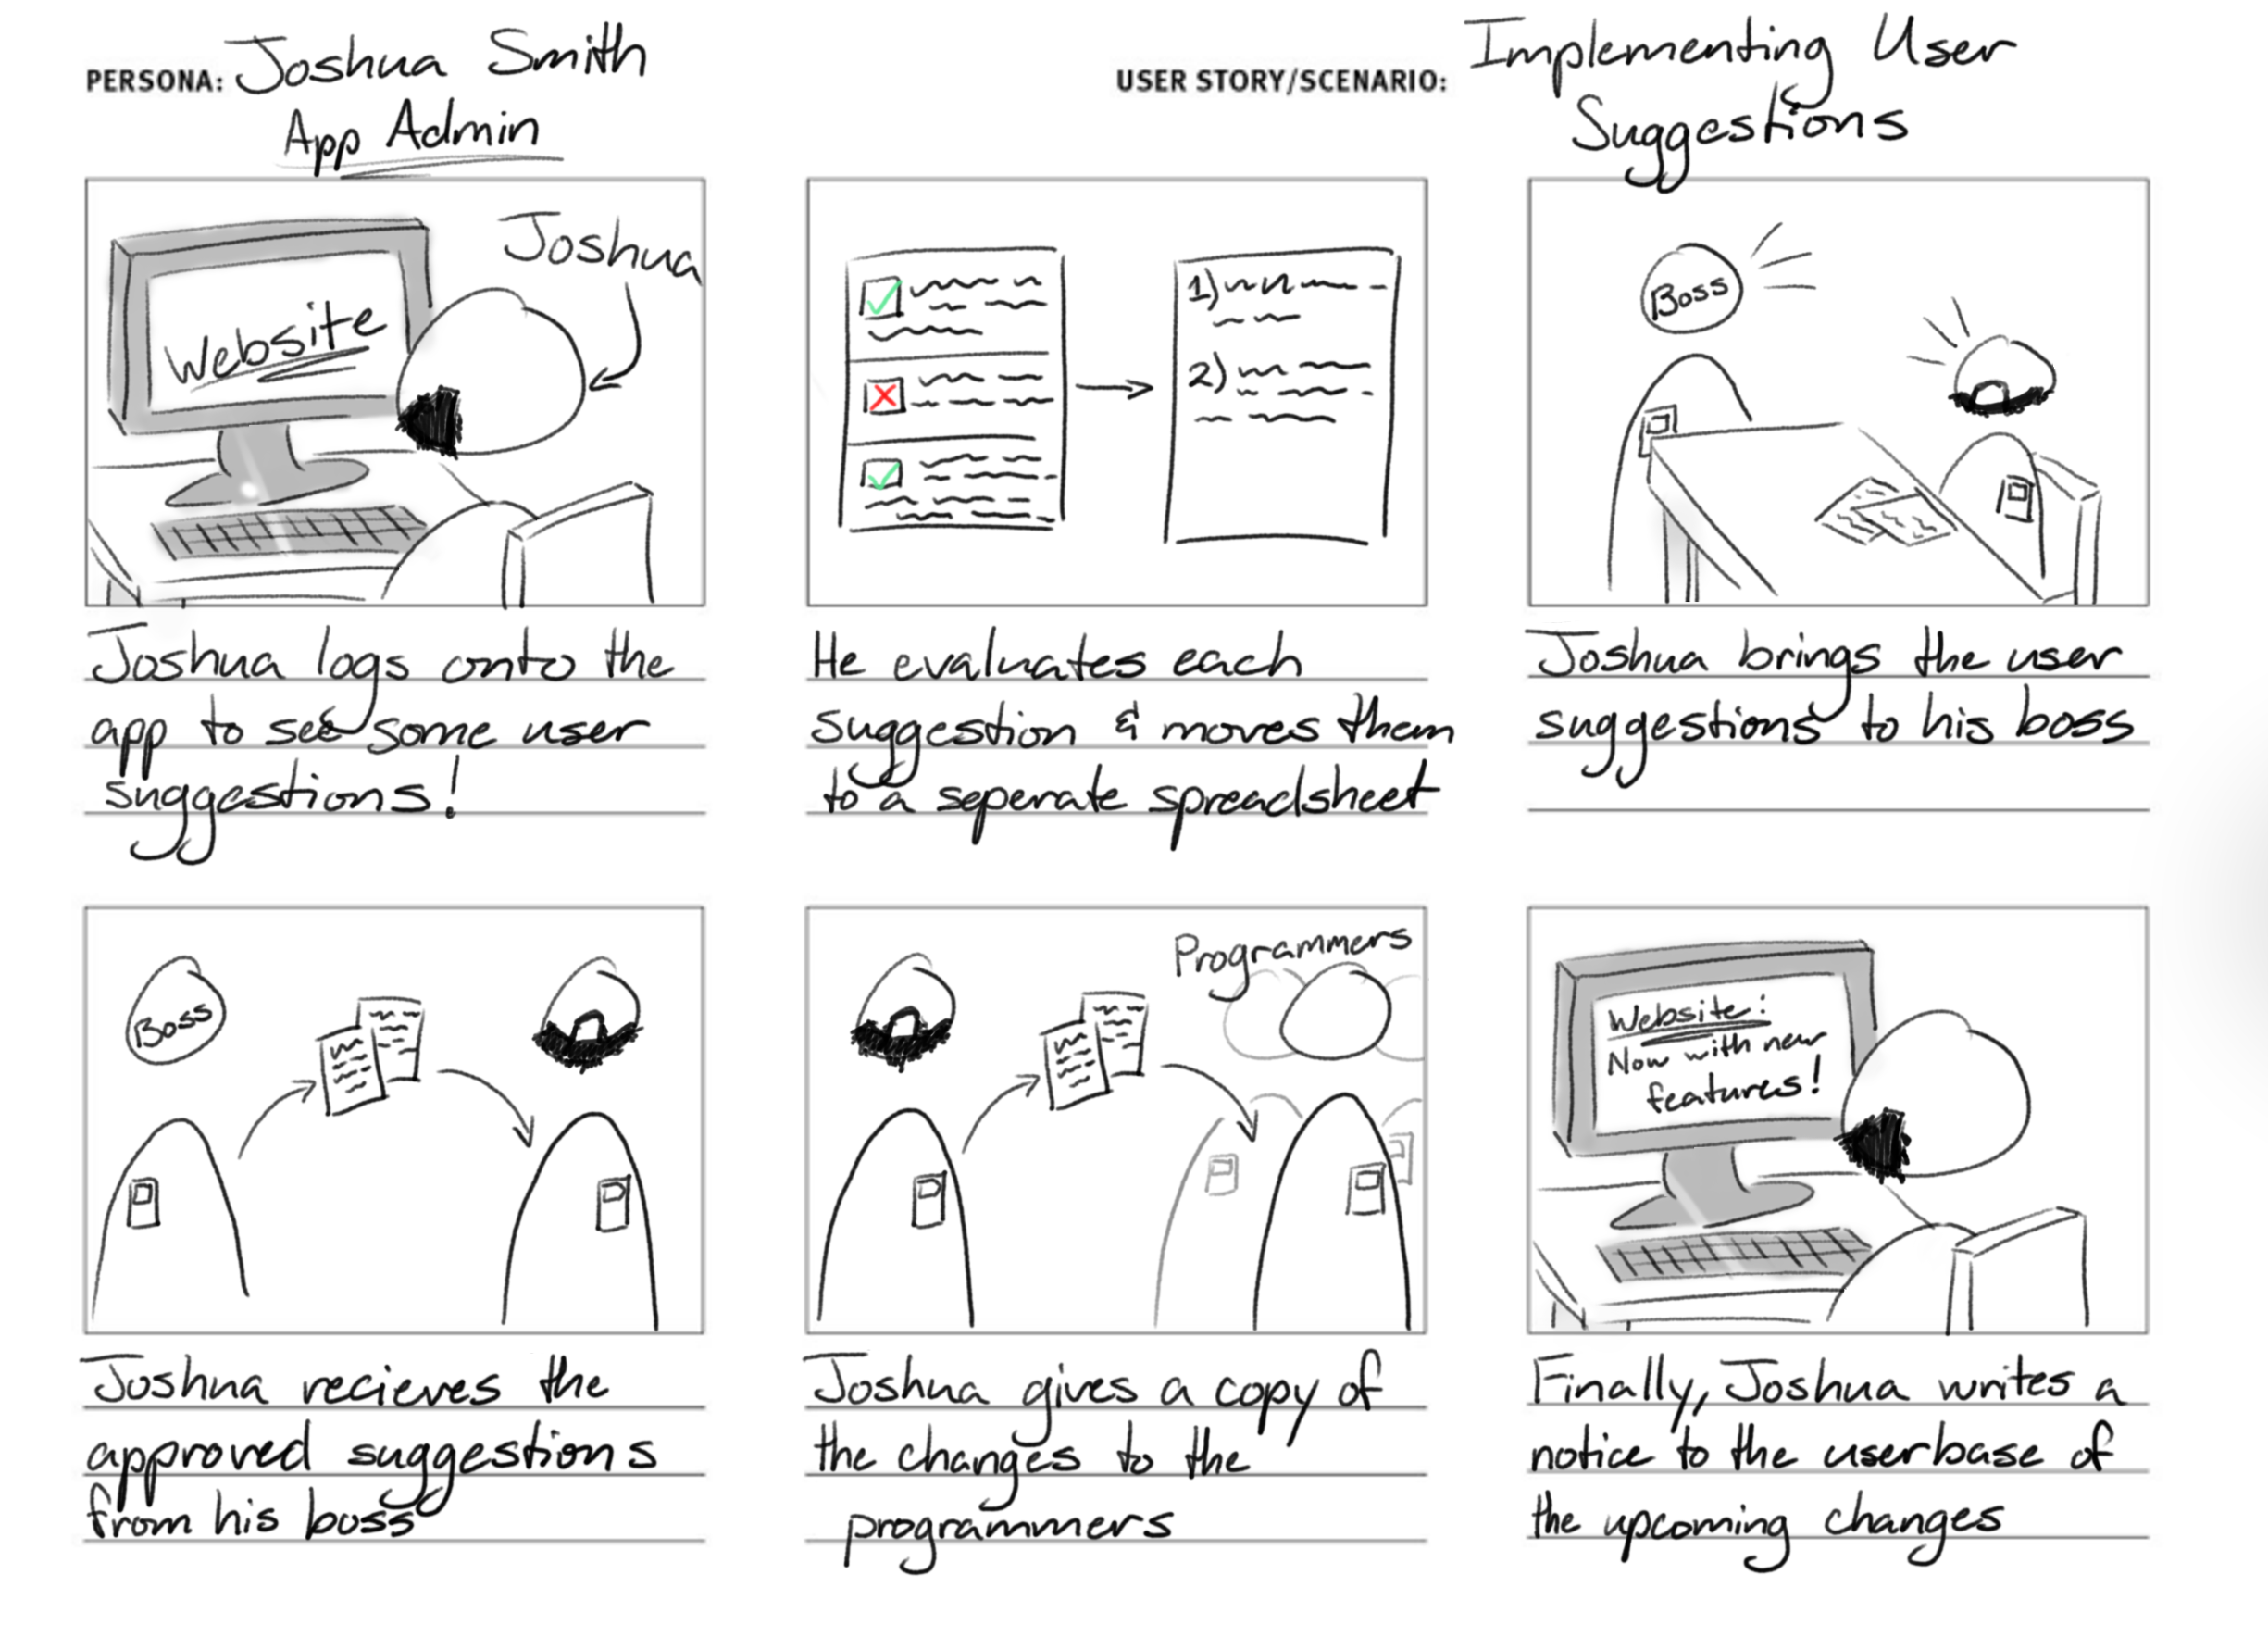 PERSONA: Joshua Smith
App Admin
USER STORY/SCENARIO: Implementing User
Suggestions
Website
Joshua
Joshua logs onto the
app to see some user
suggestions!
1)
2)
He evaluates each
suggestion & moves them
to a seperate spreadsheet
Boss
Joshua brings the user
suggestions to his boss
Boss
Joshua recieves the
approved suggestions
from his boss
Programmers
Joshua gives a copy of
the changes to the
programmers
Website:
Now with new
features!
Finally, Joshua writes a
notice to the userbase of
the upcoming changes